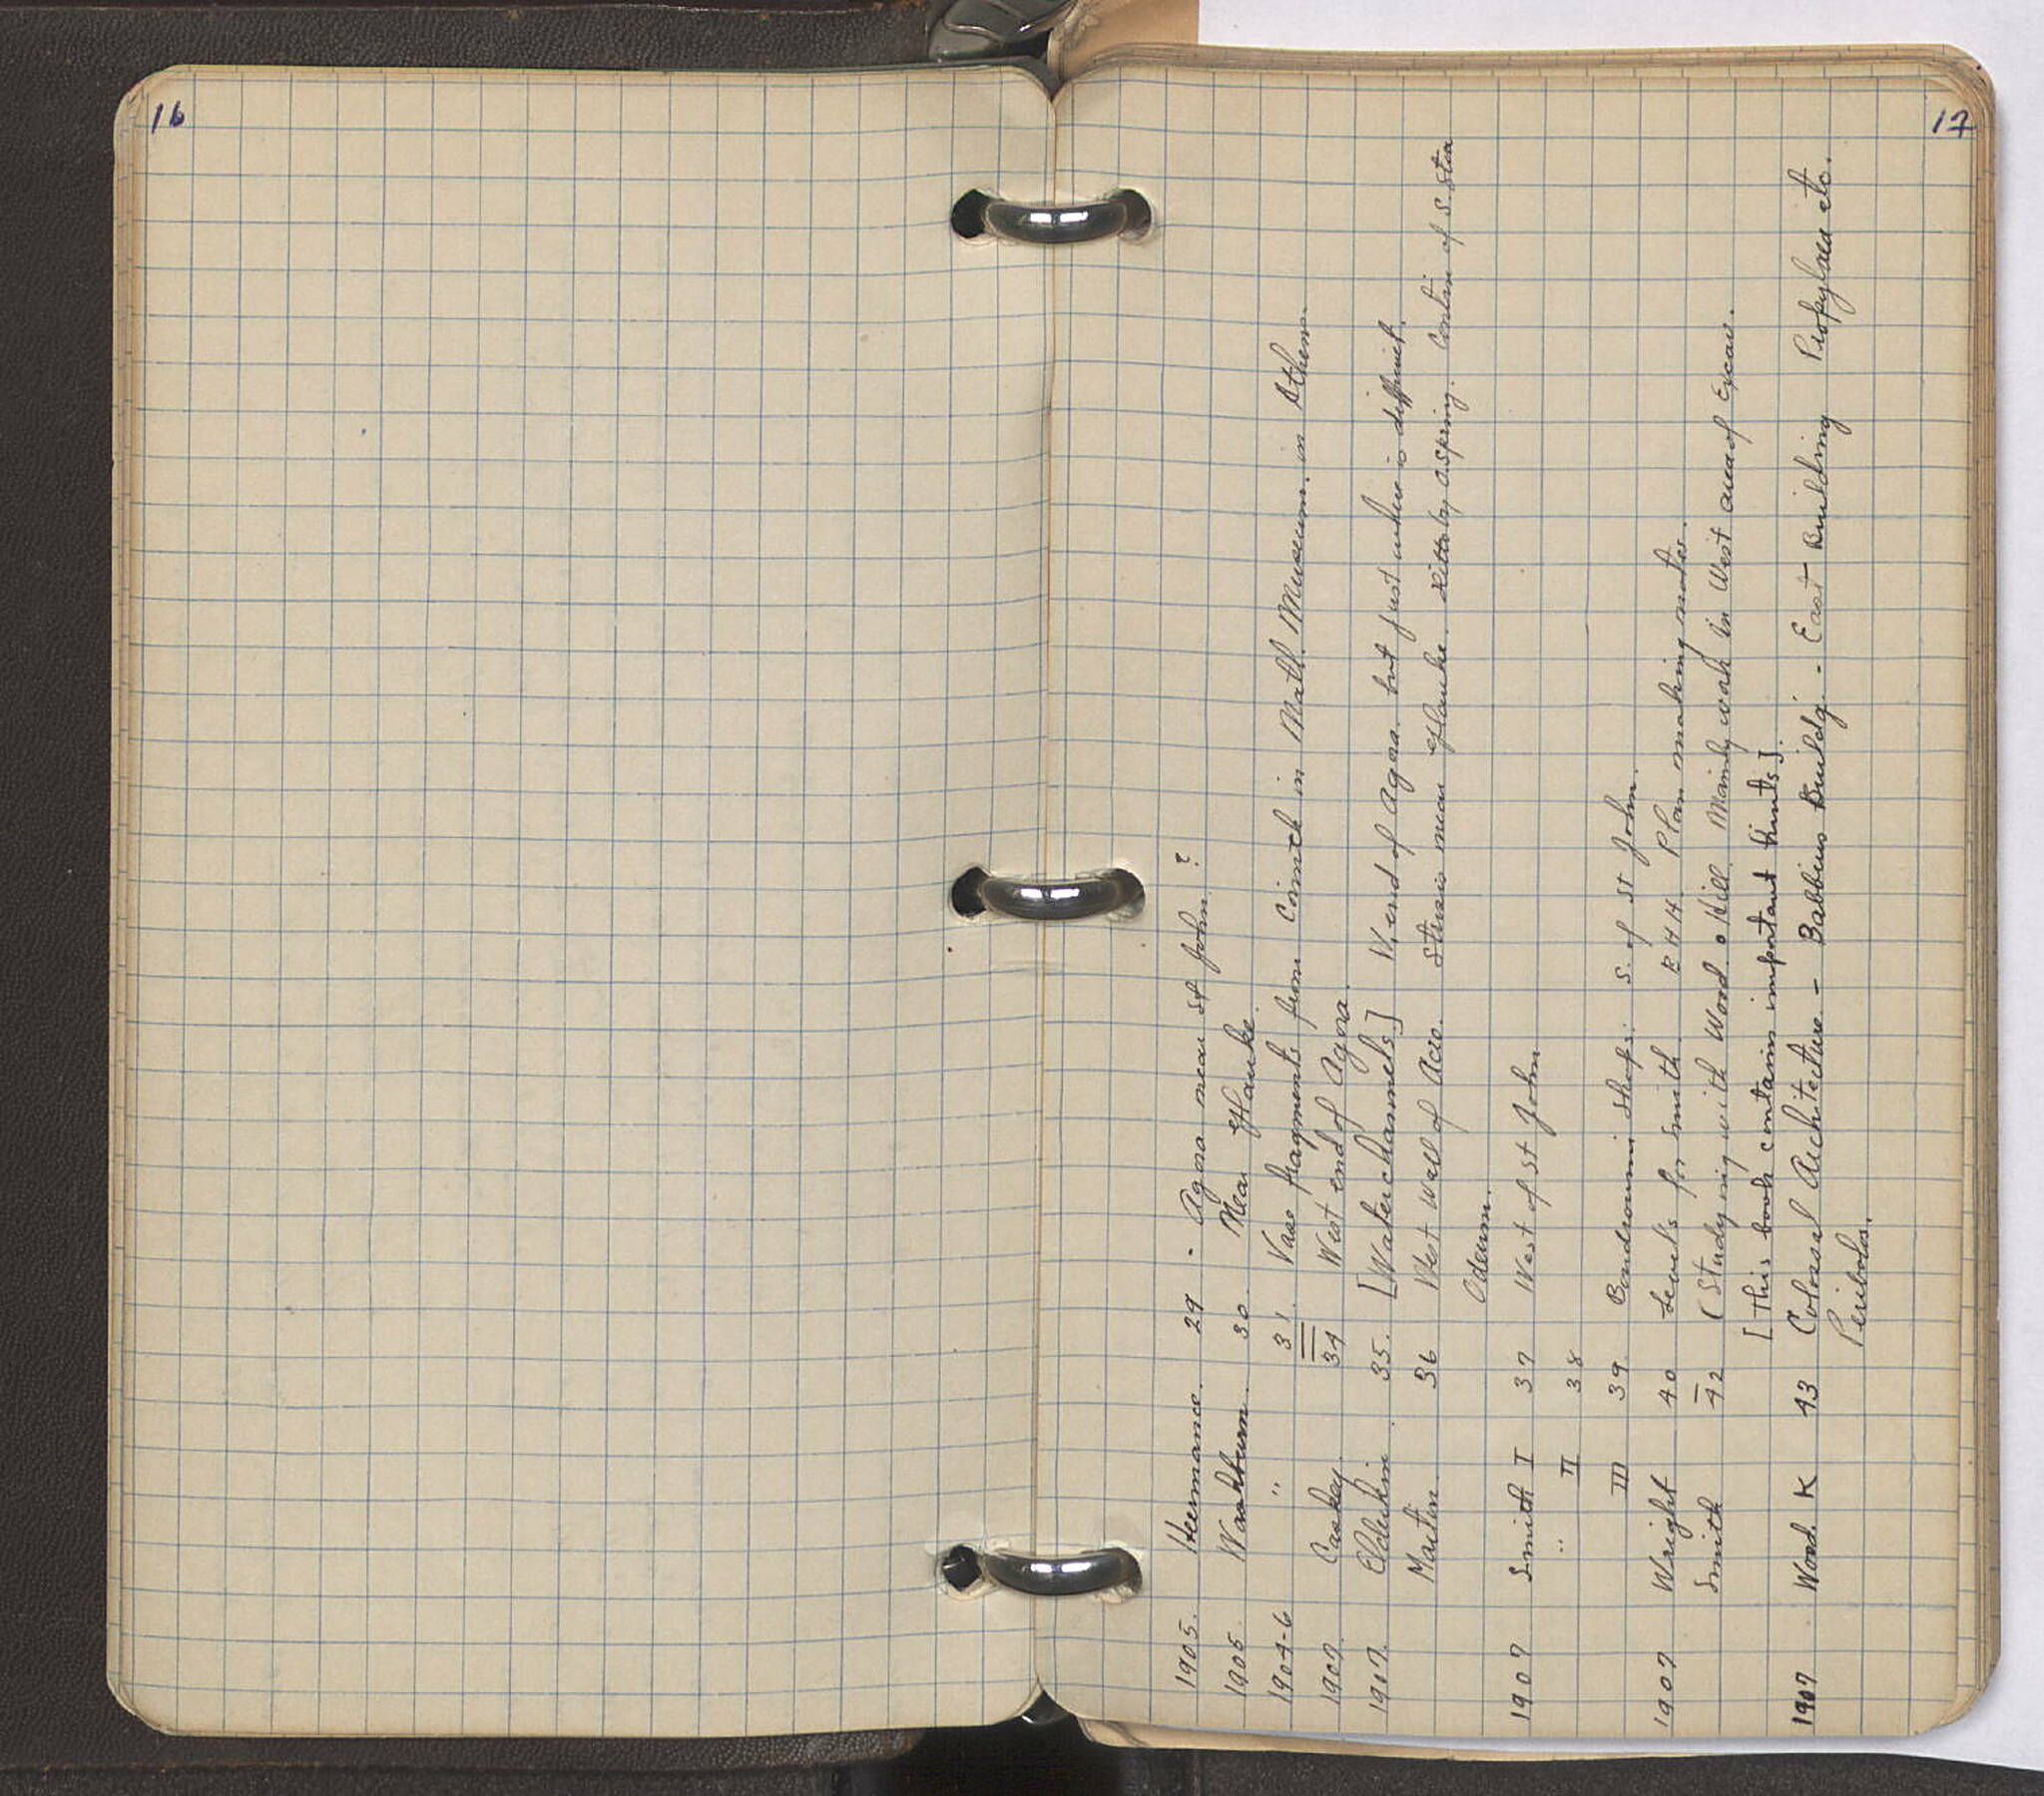 16
17
1905. Heermance. 29 - Agora near St John. ?
1905 Washburn. 30. Near Glauke.
1904-6 " 31. Vase fragments from Corinth in Natl. Museum. in Athens.
1907. Caskey. 34 West end of Agora.
1907. Elderkin. 35. [Water channels.] W. end of Agora. but just where is difficult.
Martin. 36 West wall of Acro. Strosis near Glauke. Kitter by a spring. Contin of S. Stoa
Odeum.
1907 Smith I 37 West of St John
" II 38
III 39. Boudroumi Shops: S. of St John.
1907 Wright 40 Levels for Smith. R H H. Plan making notes.
Smith 42 (Studying with Wood. & Hill. Mainly wok in West area of Excav.
[This book contains important hints].
1907 Wood. K 43 Colossal Architecture. - Babbius Buildg. - East Building Propylaea etc.
Peribolos.